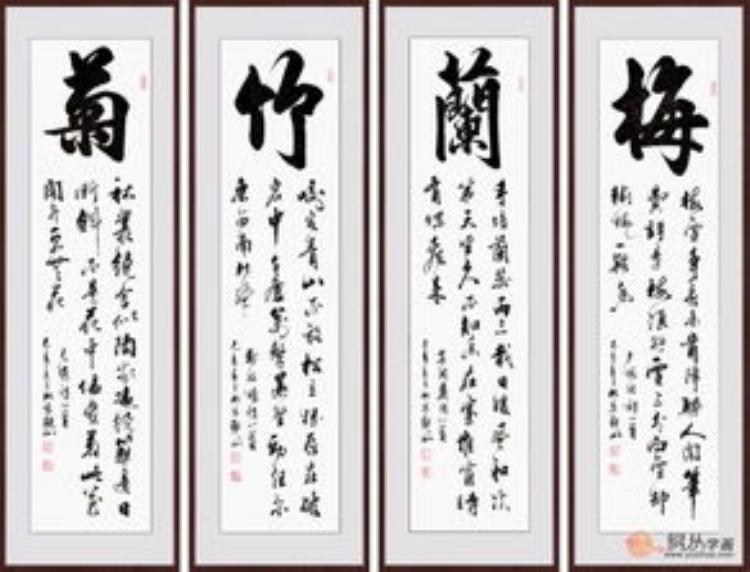 梅
梅雪争春未肯降骚人阁笔
费评章梅须逊雪三分白雪却
输梅一段香
蘭
手培蘭蕊两三栽日暖风和次
第天坐久不知香在室推窗时
有蝶飞来
竹
咬定青山不放松立根原在破
岩中千磨万击还坚劲任尔
东西南北风
菊
秋丛绕舍似陶家遍绕篱边日
渐斜不是花中偏爱菊此花
开尽更无花